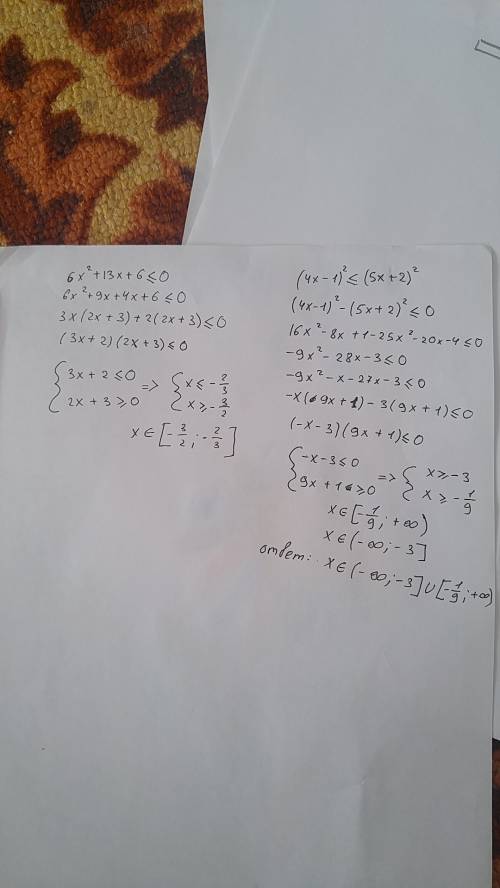 6x²+13x+6⩽0
6x²+9x+4x+6⩽0
3x(2x+3)+2(2x+3)⩽0
(3x+2)(2x+3)⩽0
{3x+2⩽0 => {x⩽-2/3
{2x+3⩾0 {x⩾-3/2
x∈[-3/2;-2/3]
(4x-1)²⩽(5x+2)²
(4x-1)²-(5x+2)²⩽0
16x²-8x+1-25x²-20x-4⩽0
-9x²-28x-3⩽0
-9x²-x-27x-3⩽0
-x(9x+1)-3(9x+1)⩽0
(-x-3)(9x+1)⩽0
{-x-3⩽0 => {x⩾-3
{9x+1⩾0 {x⩾-1/9
x∈[-1/9;+∞)
x∈(-∞;-3]
ответ: x∈(-∞;-3]∪[-1/9;+∞)